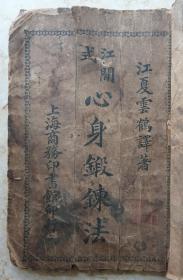 江夏雲鶴譯著
江間式
心身鍛鍊法
上海商務印書館印行